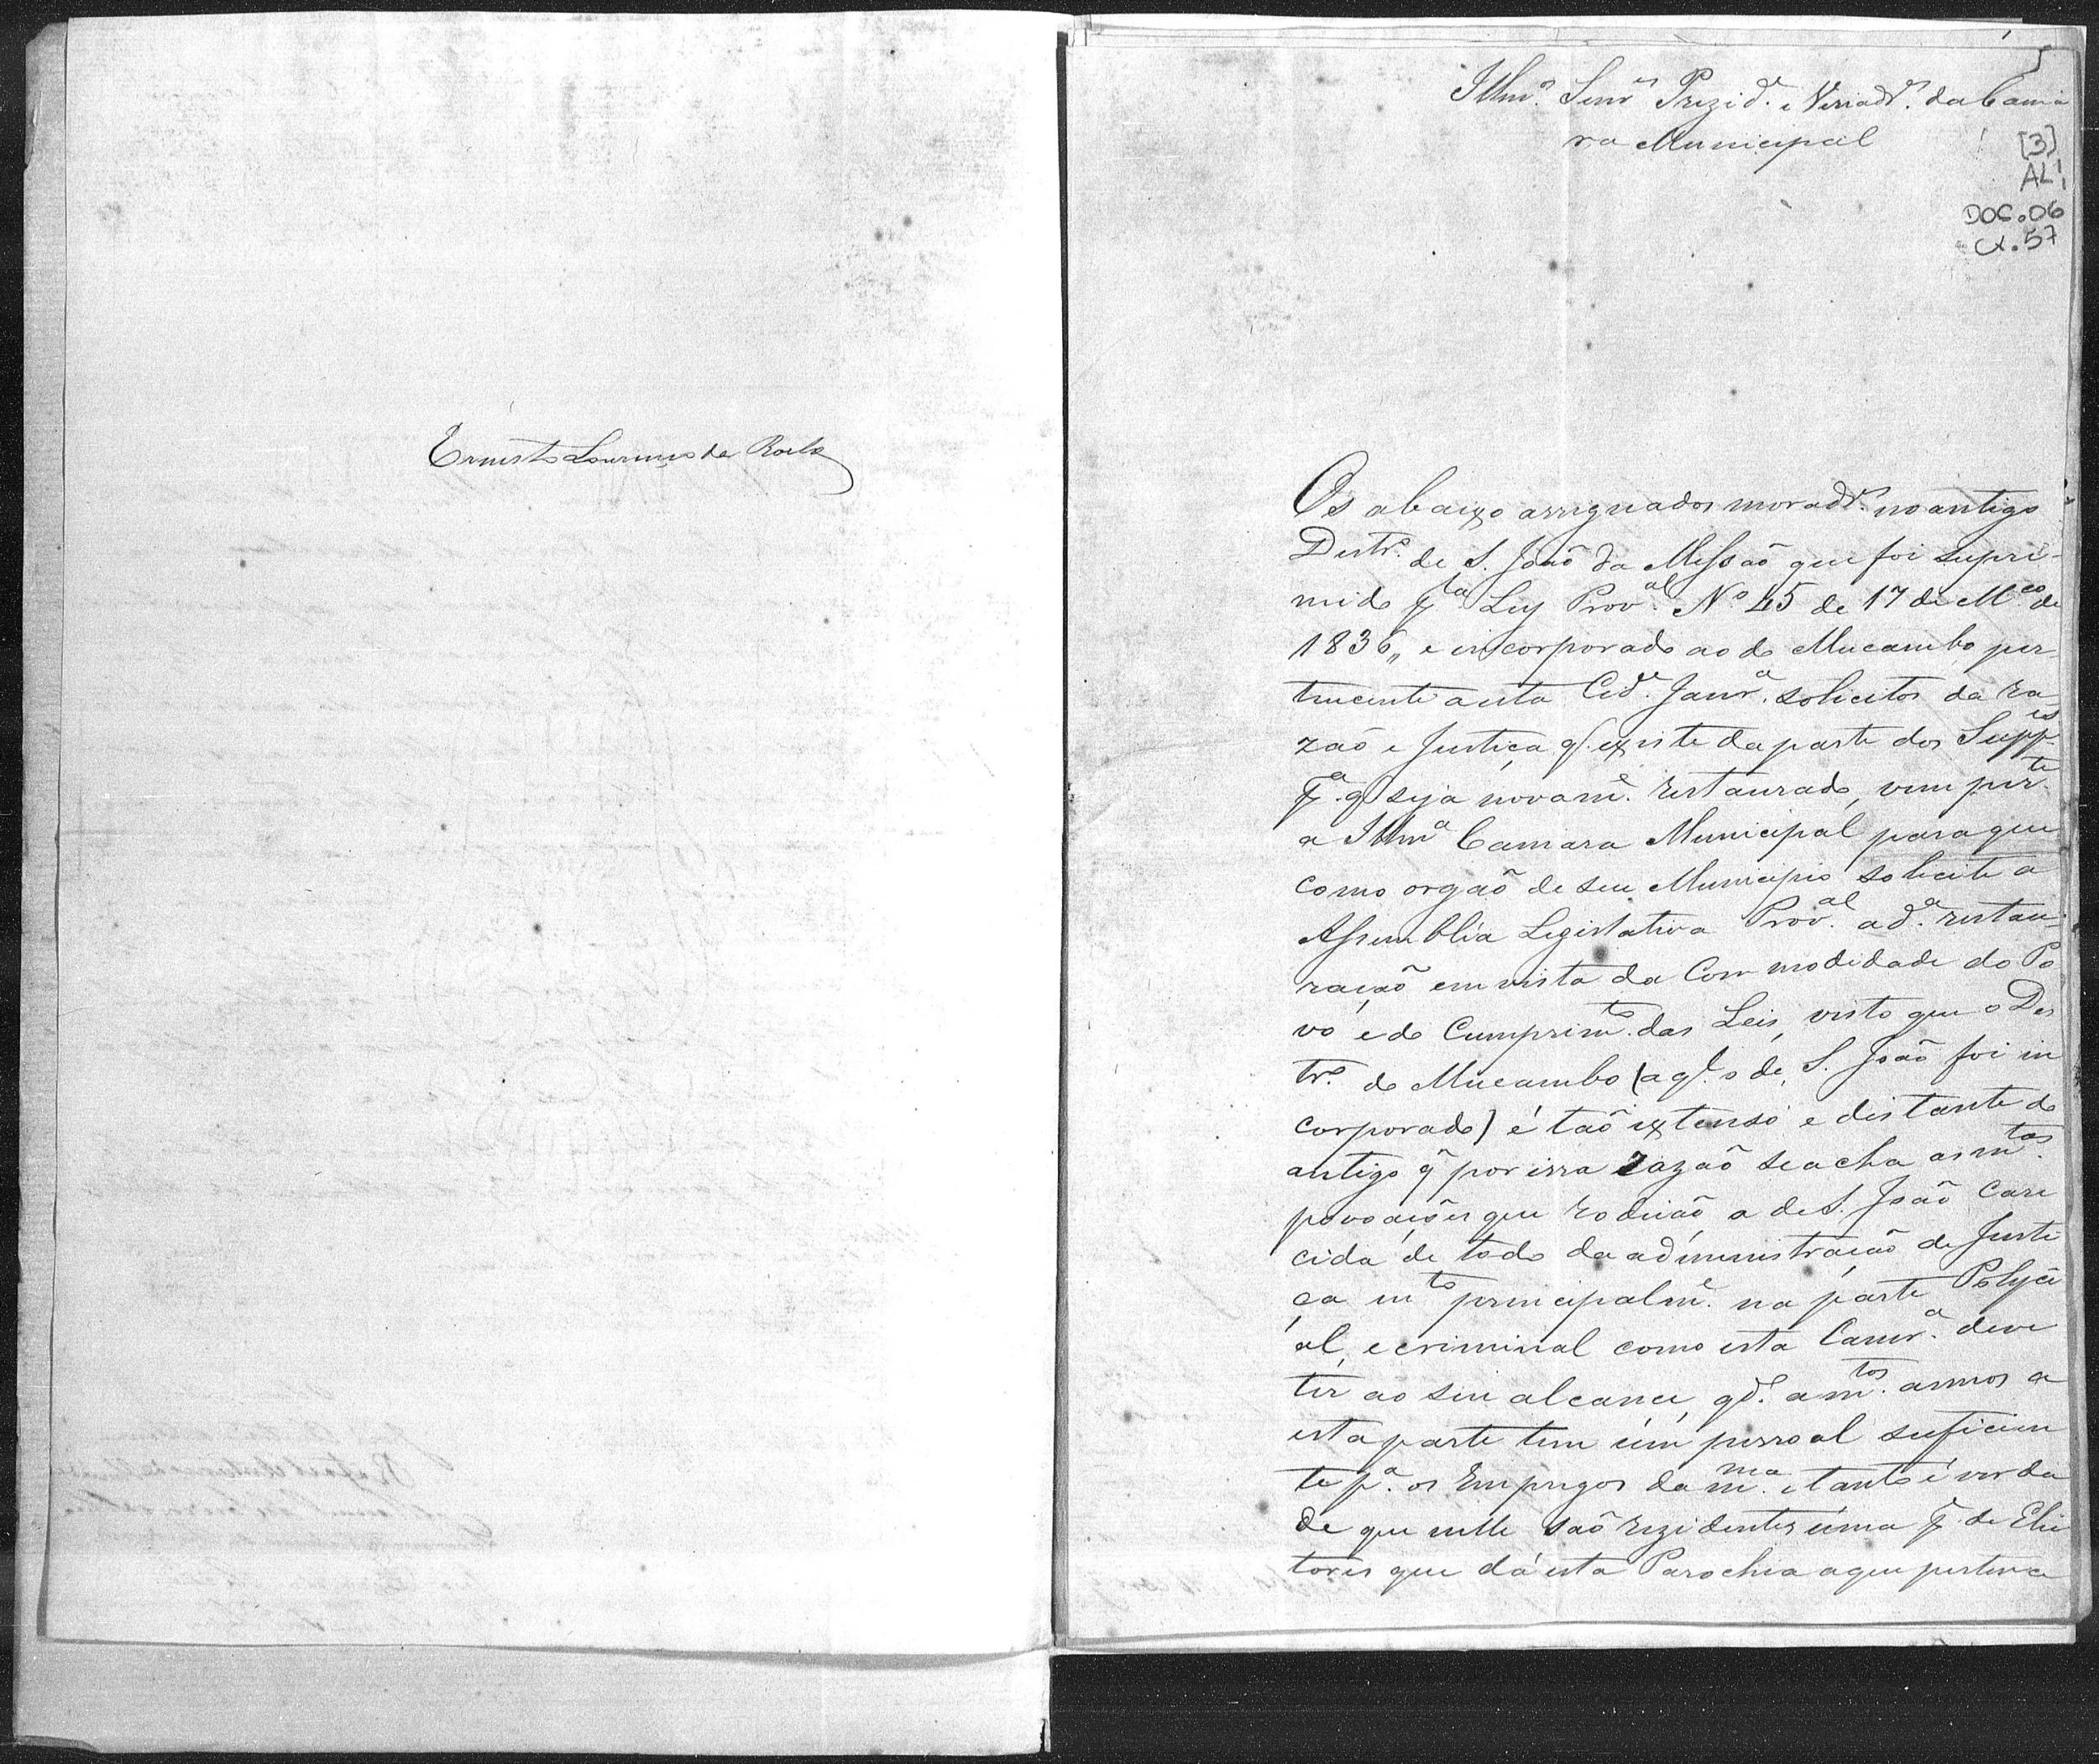 Ernesto Lourenço da Rocha
Illmos. Senres Prezide. e Veriadrs. da Cama
ra Municipal
[3]
AL!
DOC.06
CX.57
Os abaixo assignados moradrs. no antigo
Distro. de S. João da Missaõ que foi supri-
mido pla Ley Proval. Nº 45 de 17 de Mço. de
1836,, e incorporado ao do Mucambo per
tencente a esta Cide. Janra. solicitos da ra-
zaõ e Justiça q. existe da parte dos Suppes.
pa. q. seja novame. restaurado, vem perte.
a Illma Camara Municipal para que
como orgaõ de seu Municipio solicite a
Assemblia Legislativa Proval. a da. restau-
raçaõ em vista da Commodidade do Po
vo e do Cumprimto. das Leis, visto que o Des
tro. do Mucambo (a ql. o de S. Joaõ foi in
corporado) é taõ extenso e distante do
antigo q̃ por issa razaõ se acha as mtas.
povoaçoẽs que rodeiaõ a de S. Joaõ care
cida de todo da administraçaõ de Justi
ça mto principalme. na parte Polyci
al, e criminal como esta Camra. deve
ter ao seu alcance, qdo. a mtos. annos a
esta parte tem úm pessoal suficien
te pa. os Empregos da mma. e tanto é verda
de que nelle saõ rezidentes úma pe. de Elei
tores que dá esta Parochia a que pertence